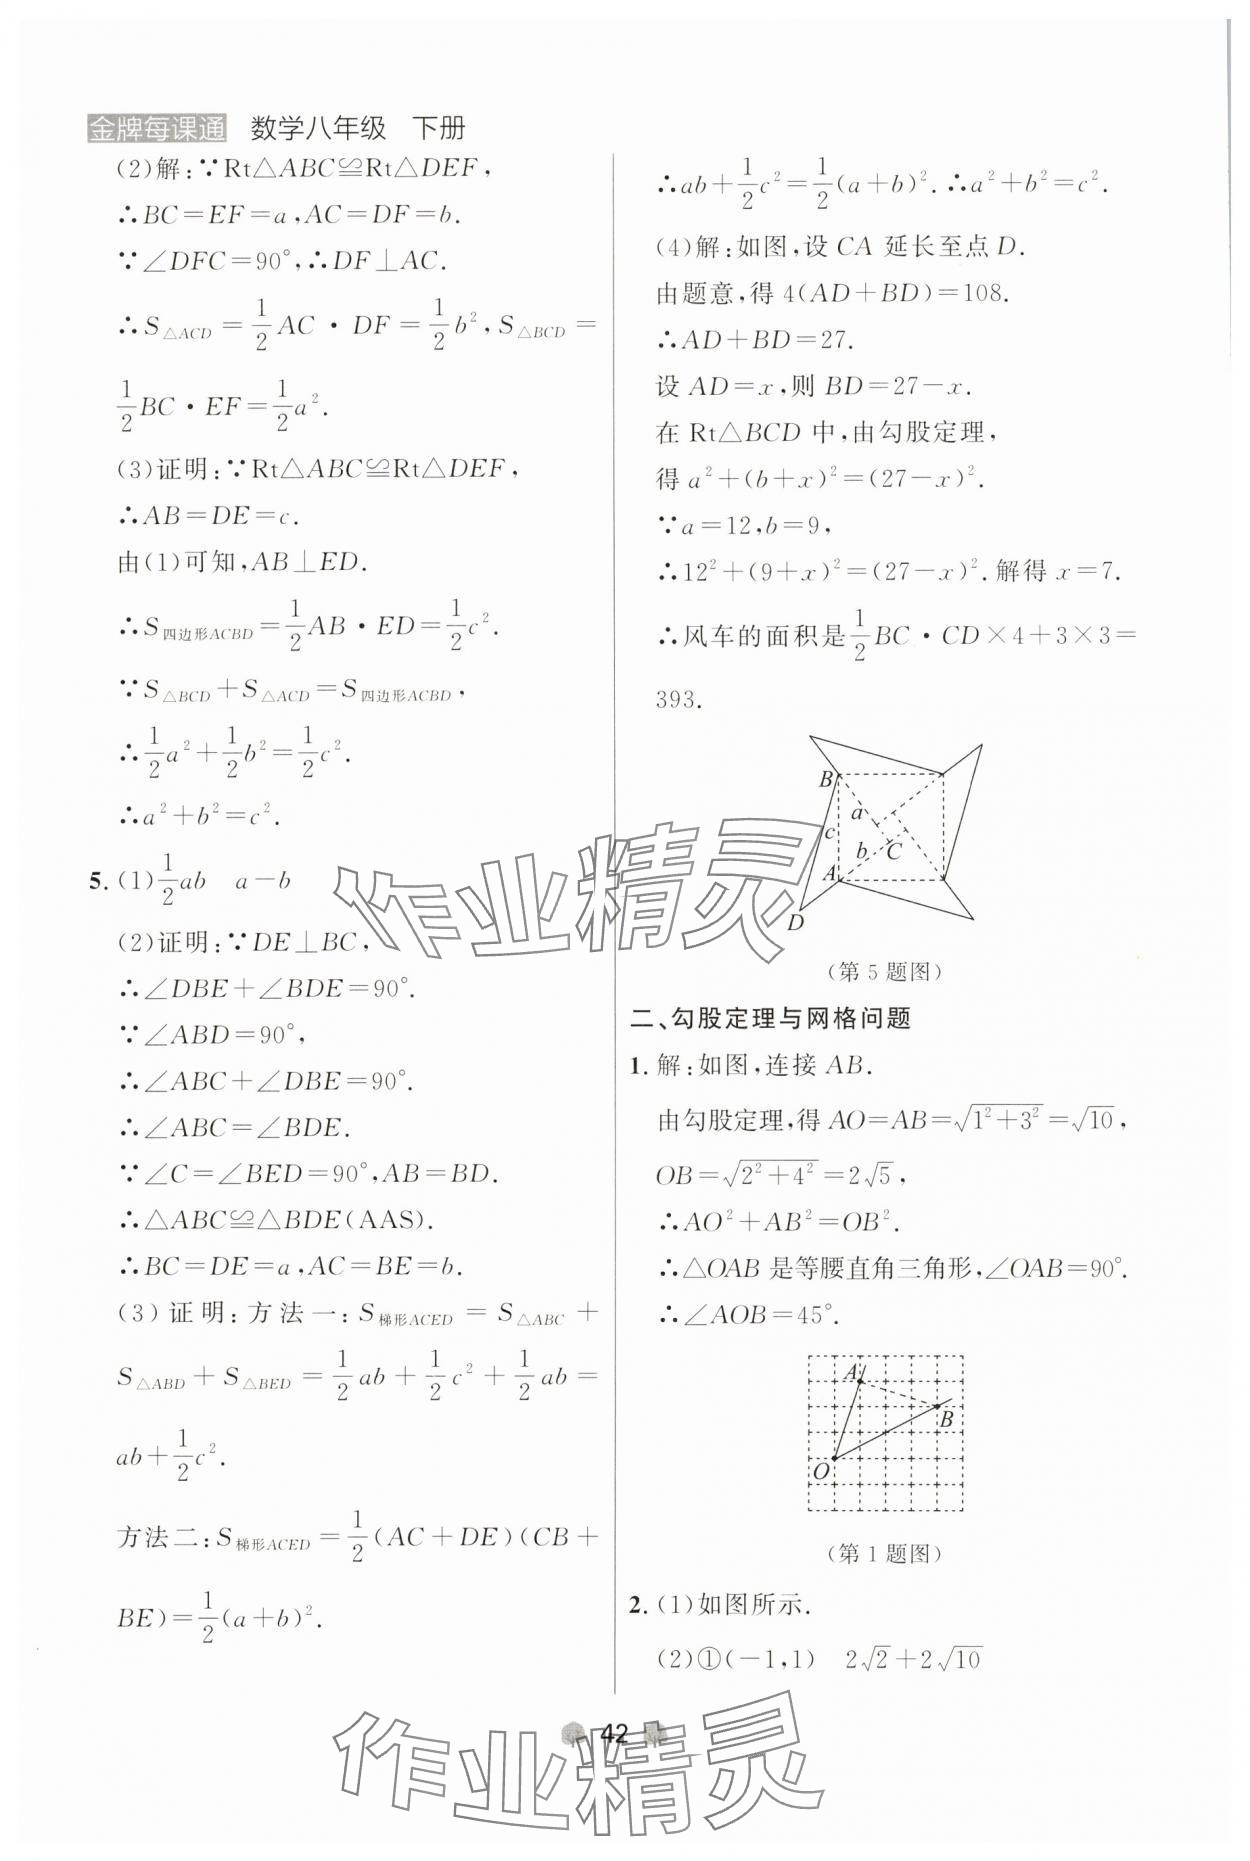 金牌每课通 数学八年级 下册
(2)解:∵Rt△ABC≌Rt△DEF,
∴BC=EF=a,AC=DF=b.
∵∠DFC=90°,∴DF⊥AC.
∴S△ACD=1/2AC·DF=1/2b²,S△BCD=
1/2BC·EF=1/2a².
(3)证明:∵Rt△ABC≌Rt△DEF,
∴AB=DE=c.
由(1)可知,AB⊥ED.
∴S四边形ACBD=1/2AB·ED=1/2c².
∵S△BCD+S△ACD=S四边形ACBD,
∴1/2a²+1/2b²=1/2c².
∴a²+b²=c².
5.(1)1/2ab a-b
(2)证明:∵DE⊥BC,
∴∠DBE+∠BDE=90°.
∵∠ABD=90°,
∴∠ABC+∠DBE=90°.
∴∠ABC=∠BDE.
∵∠C=∠BED=90°,AB=BD.
∴△ABC≌△BDE(AAS).
∴BC=DE=a,AC=BE=b.
(3)证明:方法一:S梯形ACED=S△ABC+
S△ABD+S△BED=1/2ab+1/2c²+1/2ab=
ab+1/2c².
方法二:S梯形ACED=1/2(AC+DE)(CB+
BE)=1/2(a+b)².
∴ab+1/2c²=1/2(a+b)².∴a²+b²=c².
(4)解:如图,设CA延长至点D.
由题意,得4(AD+BD)=108.
∴AD+BD=27.
设AD=x,则BD=27-x.
在Rt△BCD中,由勾股定理,
得a²+(b+x)²=(27-x)².
∵a=12,b=9,
∴12²+(9+x)²=(27-x)².解得x=7.
∴风车的面积是1/2BC·CD×4+3×3=
393.
B
a
c
b
C
A
D
(第5题图)
二、勾股定理与网格问题
1.解:如图,连接AB.
由勾股定理,得AO=AB=√(1²+3²)=√10,
OB=√(2²+4²)=2√5,
∴AO²+AB²=OB².
∴△OAB是等腰直角三角形,∠OAB=90°.
∴∠AOB=45°.
A
B
O
(第1题图)
2.(1)如图所示.
(2)①(-1,1) 2√2+2√10
42
作业精灵
作业精灵